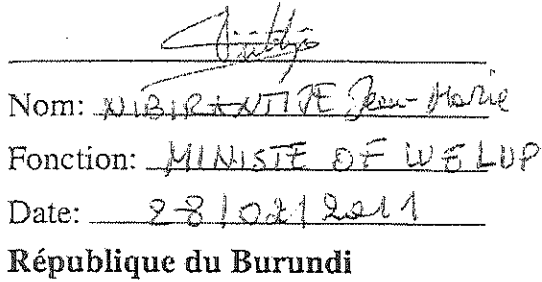 Nom: NIBIRANTIJE Jean-Marie
Fonction: MINISTE OF WELUP
Date: 28/02/2011
République du Burundi